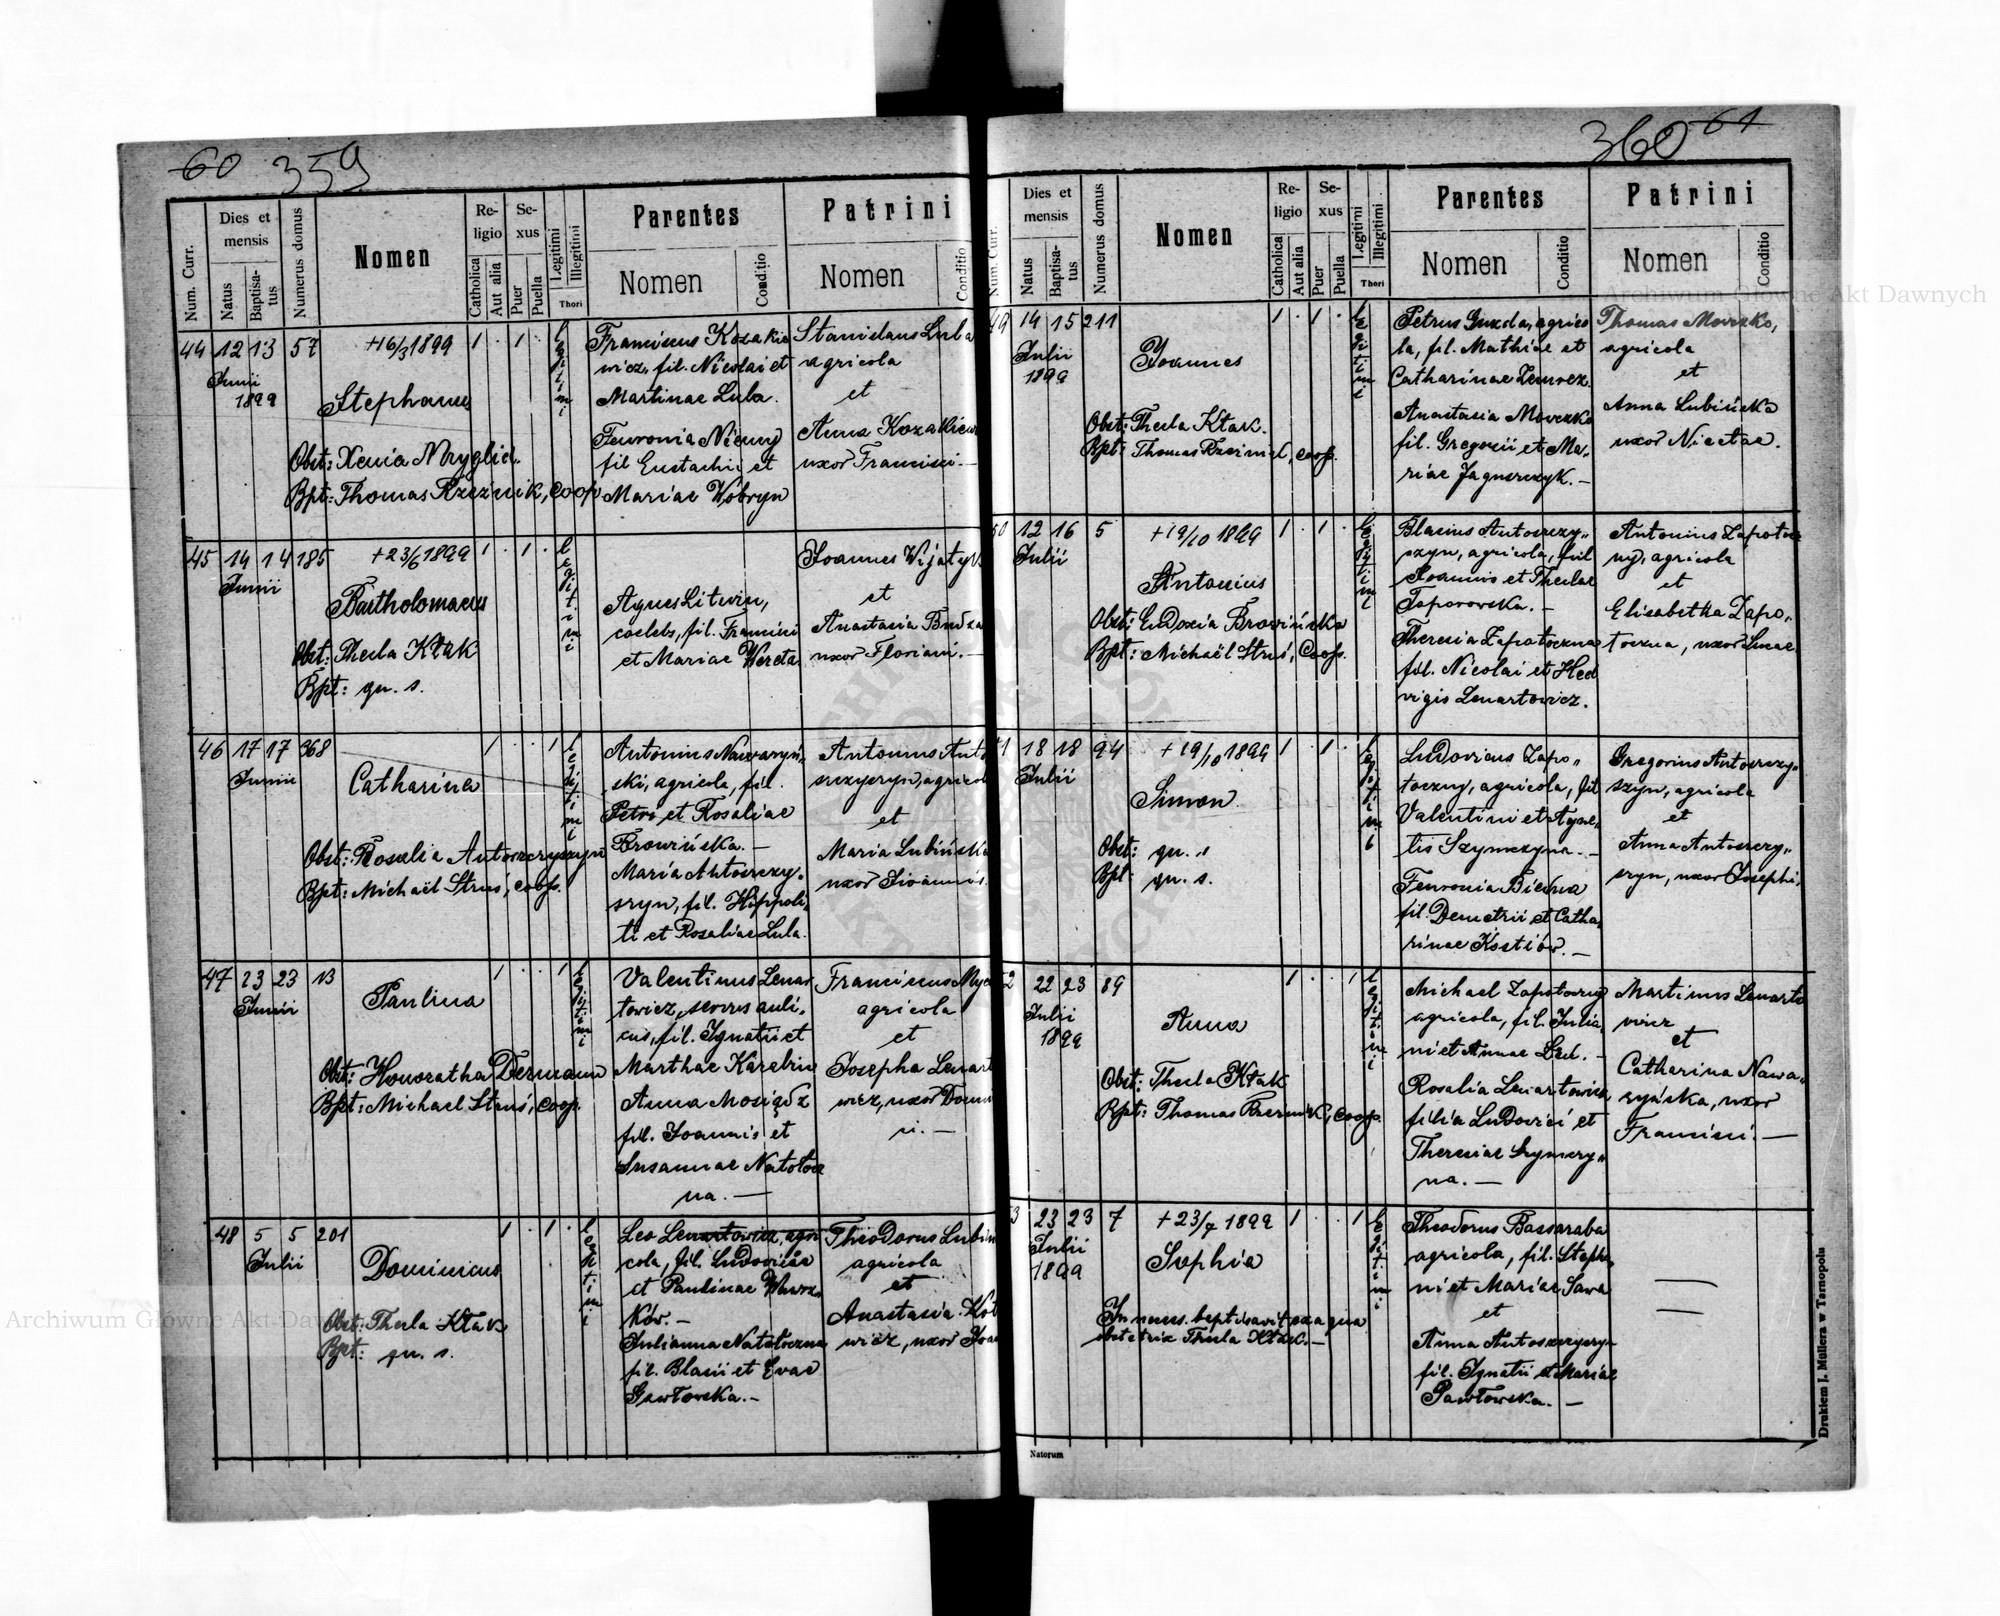 60 359
Num. Curr.
Dies et mensis
Natus
Baptisatus
Numerus domus
Nomen
Religio
Catholica
Aut alia
Sexus
Puer
Puella
Legitimi
Illegitimi
Thori
Parentes
Nomen
Conditio
Patrini
Nomen
Conditio
44 12 13 57 +16/3 1899 1 . 1 .
Junii
1899
Stephanus
Obst: Xenia Mryglid.
Bpt: Thomas Rzeźnik, coop
legitimi
Franciscus Kozakie
wicz, fil. Nicolai et
Martinae Lula.
Fevronia Niemy
fil Eustachii et
Mariae Wobryn
Stanislaus Lula
agricola
et
Anna Kozakiew
uxor Francisci.—
45 14 14 185 +23/6 1899 1 . 1 .
Junii
Bartholomaeus
Obst: Thecla Kłak
Bpt: qu. s.
Agnes Litwin,
coelebs, fil. Francisci
et Mariae Wereta.
Joannes Wijatyk
et
Anastasia Budza
uxor Floriani.—
46 17 17 368 1 . . 1
Junii
Catharina
Obst: Rosalia Antoszczyszyn
Bpt: Michaël Struś, coop.
legitimi
Antonius Nawaryń-
ski, agricola, fil.
Petri et Rosaliae
Browińska.—
Maria Antoszczy-
szyn, fil. Hippoli-
ti et Rosaliae Lula.
Antonius Anto
szczyszyn, agricola
et
Maria Lubińska
uxor Joannis.
47 23 23 13 1 . . 1
Junii
Paulina
Obst: Honoratha Dermann
Bpt: Michael Struś, coop.
legitimi
Valentinus Lenar
towicz, servus auli-
cus, fil. Ignatii et
Marthae Karabin
Anna Mosiądz
fil. Joannis et
Susannae Natołocz
na.—
Franciscus
agricola
et
Josepha Lenart
wicz, uxor Domi
ci.—
48 5 5 201 1 . 1 .
Julii
Dominicus
Obst: Thecla Kłak
Bpt: qu. s.
legitimi
Leo Lenartowicz, agri
cola, fil. Ludovici
et Paulinae Wawrz-
ków.—
Julianna Natołoczna
fil. Blasii et Evae
Gawłowska.—
Theodorus Lubin
agricola
et
Anastasia Kot
wicz, uxor Joa
360 61
Num. Curr.
Dies et mensis
Natus
Baptisatus
Numerus domus
Nomen
Religio
Catholica
Aut alia
Sexus
Puer
Puella
Legitimi
Illegitimi
Thori
Parentes
Nomen
Conditio
Patrini
Nomen
Conditio
49 14 15 211 1 . 1 .
Julii
1899
Joannes
Obst: Thecla Kłak.
Bpt: Thomas Rzeźnik, coop.
legitimi
Petrus Guzda, agrico
la, fil. Mathiae et
Catharinae
Anastasia Moroczko
fil. Gregorii et Ma-
riae Jagnszczyk.—
Thomas Moroczko,
agricola
et
Anna Lubińska
uxor Nicetae.
50 12 16 5 +19/10 1899 1 . 1 .
Julii
Antonius
Obst: Eudoxia Browińska
Bpt: Michaël Struś, Coop.
legitimi
Blasius Antoszczy-
szyn, agricola, fil
Joannis et Theclae
Toporowska.—
Theresia Zapotoczna
fil. Nicolai et Hed
vigis Lenartowicz.
Antonius Zapotocz
ny, agricola
et
Elisabetha Zapo-
toczna, uxor Lucae
1 18 18 94 +19/10 1899 1 . 1 .
Julii
Simeon
Obst: qu. s
Bpt: qu. s.
legitimi
Ludovicus Zapo-
toczny, agricola, fil
Valentini et Agne-
tis Szymczyna.—
Fevronia Biedna
fil. Demetrii et Catha-
rinae Kostiów.—
Gregorius Antoszczy-
szyn, agricola
et
Anna Antoszczy-
szyn, uxor Josephi.
2 22 23 89 1 . . 1
Julii
1899
Anna
Obst: Thecla Kłak
Bpt: Thomas Rzeźnik, coop.
legitimi
Michael Zapotoczny
agricola, fil. Julia
ni et Annae
Rosalia Lenartowicz
filia Ludovici et
Theresiae Szymczy-
na.—
Martinus Lenarto
wicz
et
Catharina Nawa-
ryńska, uxor
Francisci.—
3 23 23 7 +23/7 1899 1 . . 1
Julii
1899
Sophia
In necess. baptisavit ex aqua
obstetrix Thecla Kłak.—
legitimi
Theodorus Bassaraba
agricola, fil. Stepha
ni et Mariae Sawa
et
Anna Antoszczyszyn
fil. Ignatii et Mariae
Pawłowska.—
Natorum
Drukiem J. Müllera w Tarnopolu
Archiwum Główne Akt Dawnych
Archiwum Główne Akt Dawnych